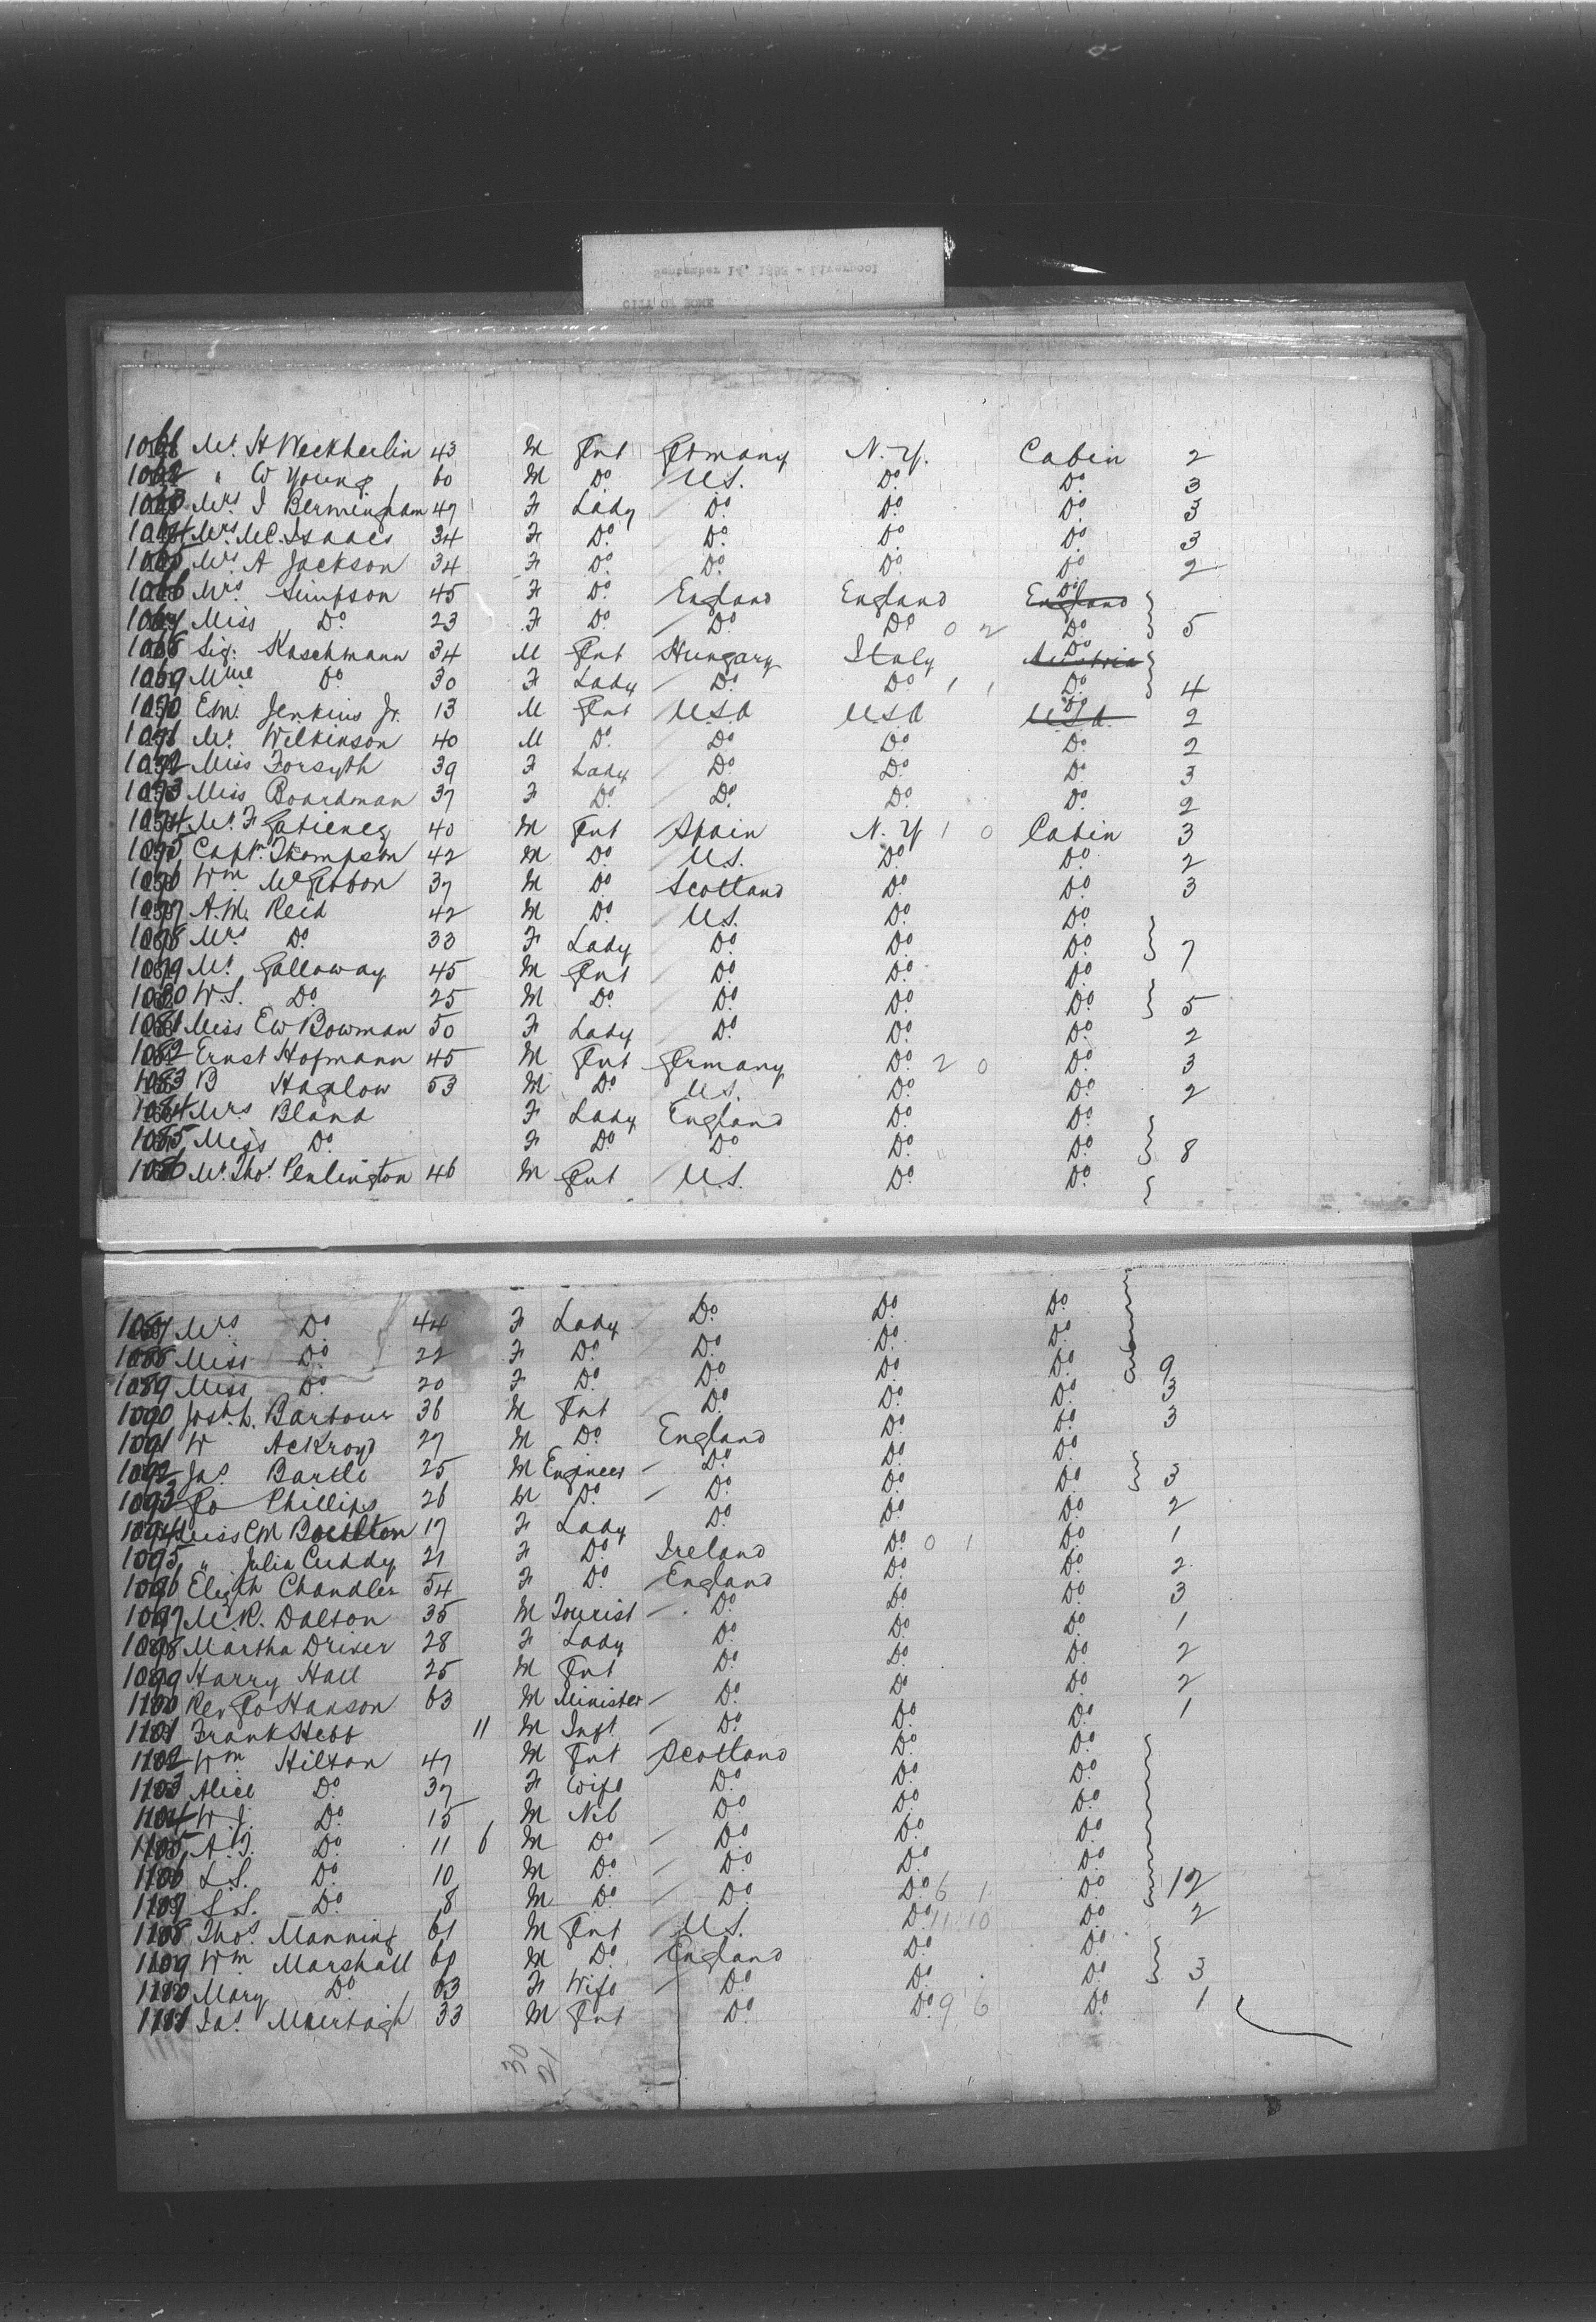 September 14, 1892 - Liverpool
CITY OF ROME
1061 Mr. H Weckherlin 43 M Gnt Germany N.Y. Cabin 2
1062 " W Young 60 M Do U.S. Do. Do. 3
1063 Mrs. I Bermingham 47 F Lady Do. Do. Do. 3
1064 Mrs. MC. Isaacs 34 F Do. Do. Do. Do. 3
1065 Mrs. A Jackson 34 F Do. Do. Do. Do 2
1066 Mrs. Simpson 45 F Do. England England England Do
1067 Miss Do. 23 F Do. Do. Do 0 2 Do. 5
1068 Sig. Kaschmann 34 M Gnt Hungary Italy Austria Do
1069 Mme Do. 30 F Lady Do. Do 1 1 Do. 4
1070 E.M. Jenkins Jr. 13 M Gnt U.S.A U.S.A U.S.A. Do 2
1071 Mr. Wilkinson 40 M Do. Do. Do. Do. 2
1072 Miss Forsyth 39 F Lady Do. Do. Do. 3
1073 Miss Boardman 37 F Do. Do. Do. Do. 2
1074 Mr. F 40 M Gnt Spain N.Y 1 0 Cabin 3
1075 Captn. Thompson 42 M Do. U.S. Do. Do. 2
1076 Wm McGibbon 37 M Do Scotland Do. Do. 3
1077 A.M. Reid 42 M Do. U.S. Do. Do.
1078 Mrs Do. 33 F Lady Do. Do. Do. 7
1079 Mr. Galloway 45 M Gnt Do. Do. Do.
1080 W.S. Do. 25 M Do. Do. Do. Do. 5
1081 Miss EW Bowman 50 F Lady Do. Do. Do. 2
1082 Ernst Hofmann 45 M Gnt Germany Do. 2 0 Do. 3
1083 B Haglow 53 M Do U.S. Do. Do. 2
1084 Mrs Bland F Lady England Do. Do.
1085 Miss Do. F Do Do. Do. Do. 8
1086 Mr. Thos. Penlington 46 M Gnt U.S. Do. Do.
1087 Mrs Do. 44 F Lady Do. Do. Do.
1088 Miss Do. 22 F Do. Do. Do. Do.
1089 Miss Do. 20 F Do. Do. Do. Do. 9
1090 Josh. L. Barbour 36 M Gnt Do. Do. Do. 3
1091 W Ackroyd 27 M Do. England Do. Do. 3
1092 Jas Bartle 25 M Engineer Do. Do. Do.
1093 Geo Phillips 26 M Do. Do. Do. Do. 3
1094 Miss CM Boulton 17 F Lady Do. Do. Do. 2
1095 " Julia Cuddy 21 F Do. Ireland Do 0 1 Do. 1
1096 Elizth Chandler 54 F Do. England Do. Do. 2
1097 M.R. Dalton 35 M Tourist Do. Do. Do. 3
1098 Martha Driver 28 F Lady Do. Do. Do. 1
1099 Harry Hall 25 M Gnt Do. Do. Do. 2
1100 Rev Geo Hanson 63 M Minister Do. Do. Do. 2
1101 Frank Hebb 11 M Inft Do. Do. Do. 1
1102 Wm Hilton 47 M Gnt Scotland Do. Do.
1103 Alice Do. 37 F Wife Do. Do. Do.
1104 W.J. Do. 15 M Nil Do. Do. Do.
1105 A.J. Do. 11 6 M Do. Do. Do. Do.
1106 L.S. Do. 10 M Do. Do. Do. Do.
1107 S.S. Do. 8 M Do. Do. Do. 6 1 Do. 12
1108 Thos Manning 61 M Gnt U.S. Do. 11 10 Do. 2
1109 Wm Marshall 60 M Do. England Do. Do.
1110 Mary Do. 63 F Wife Do. Do. Do. 3
1111 Jas. Muertagh 33 M Gnt Do. Do. 9 6 Do. 1
30
21